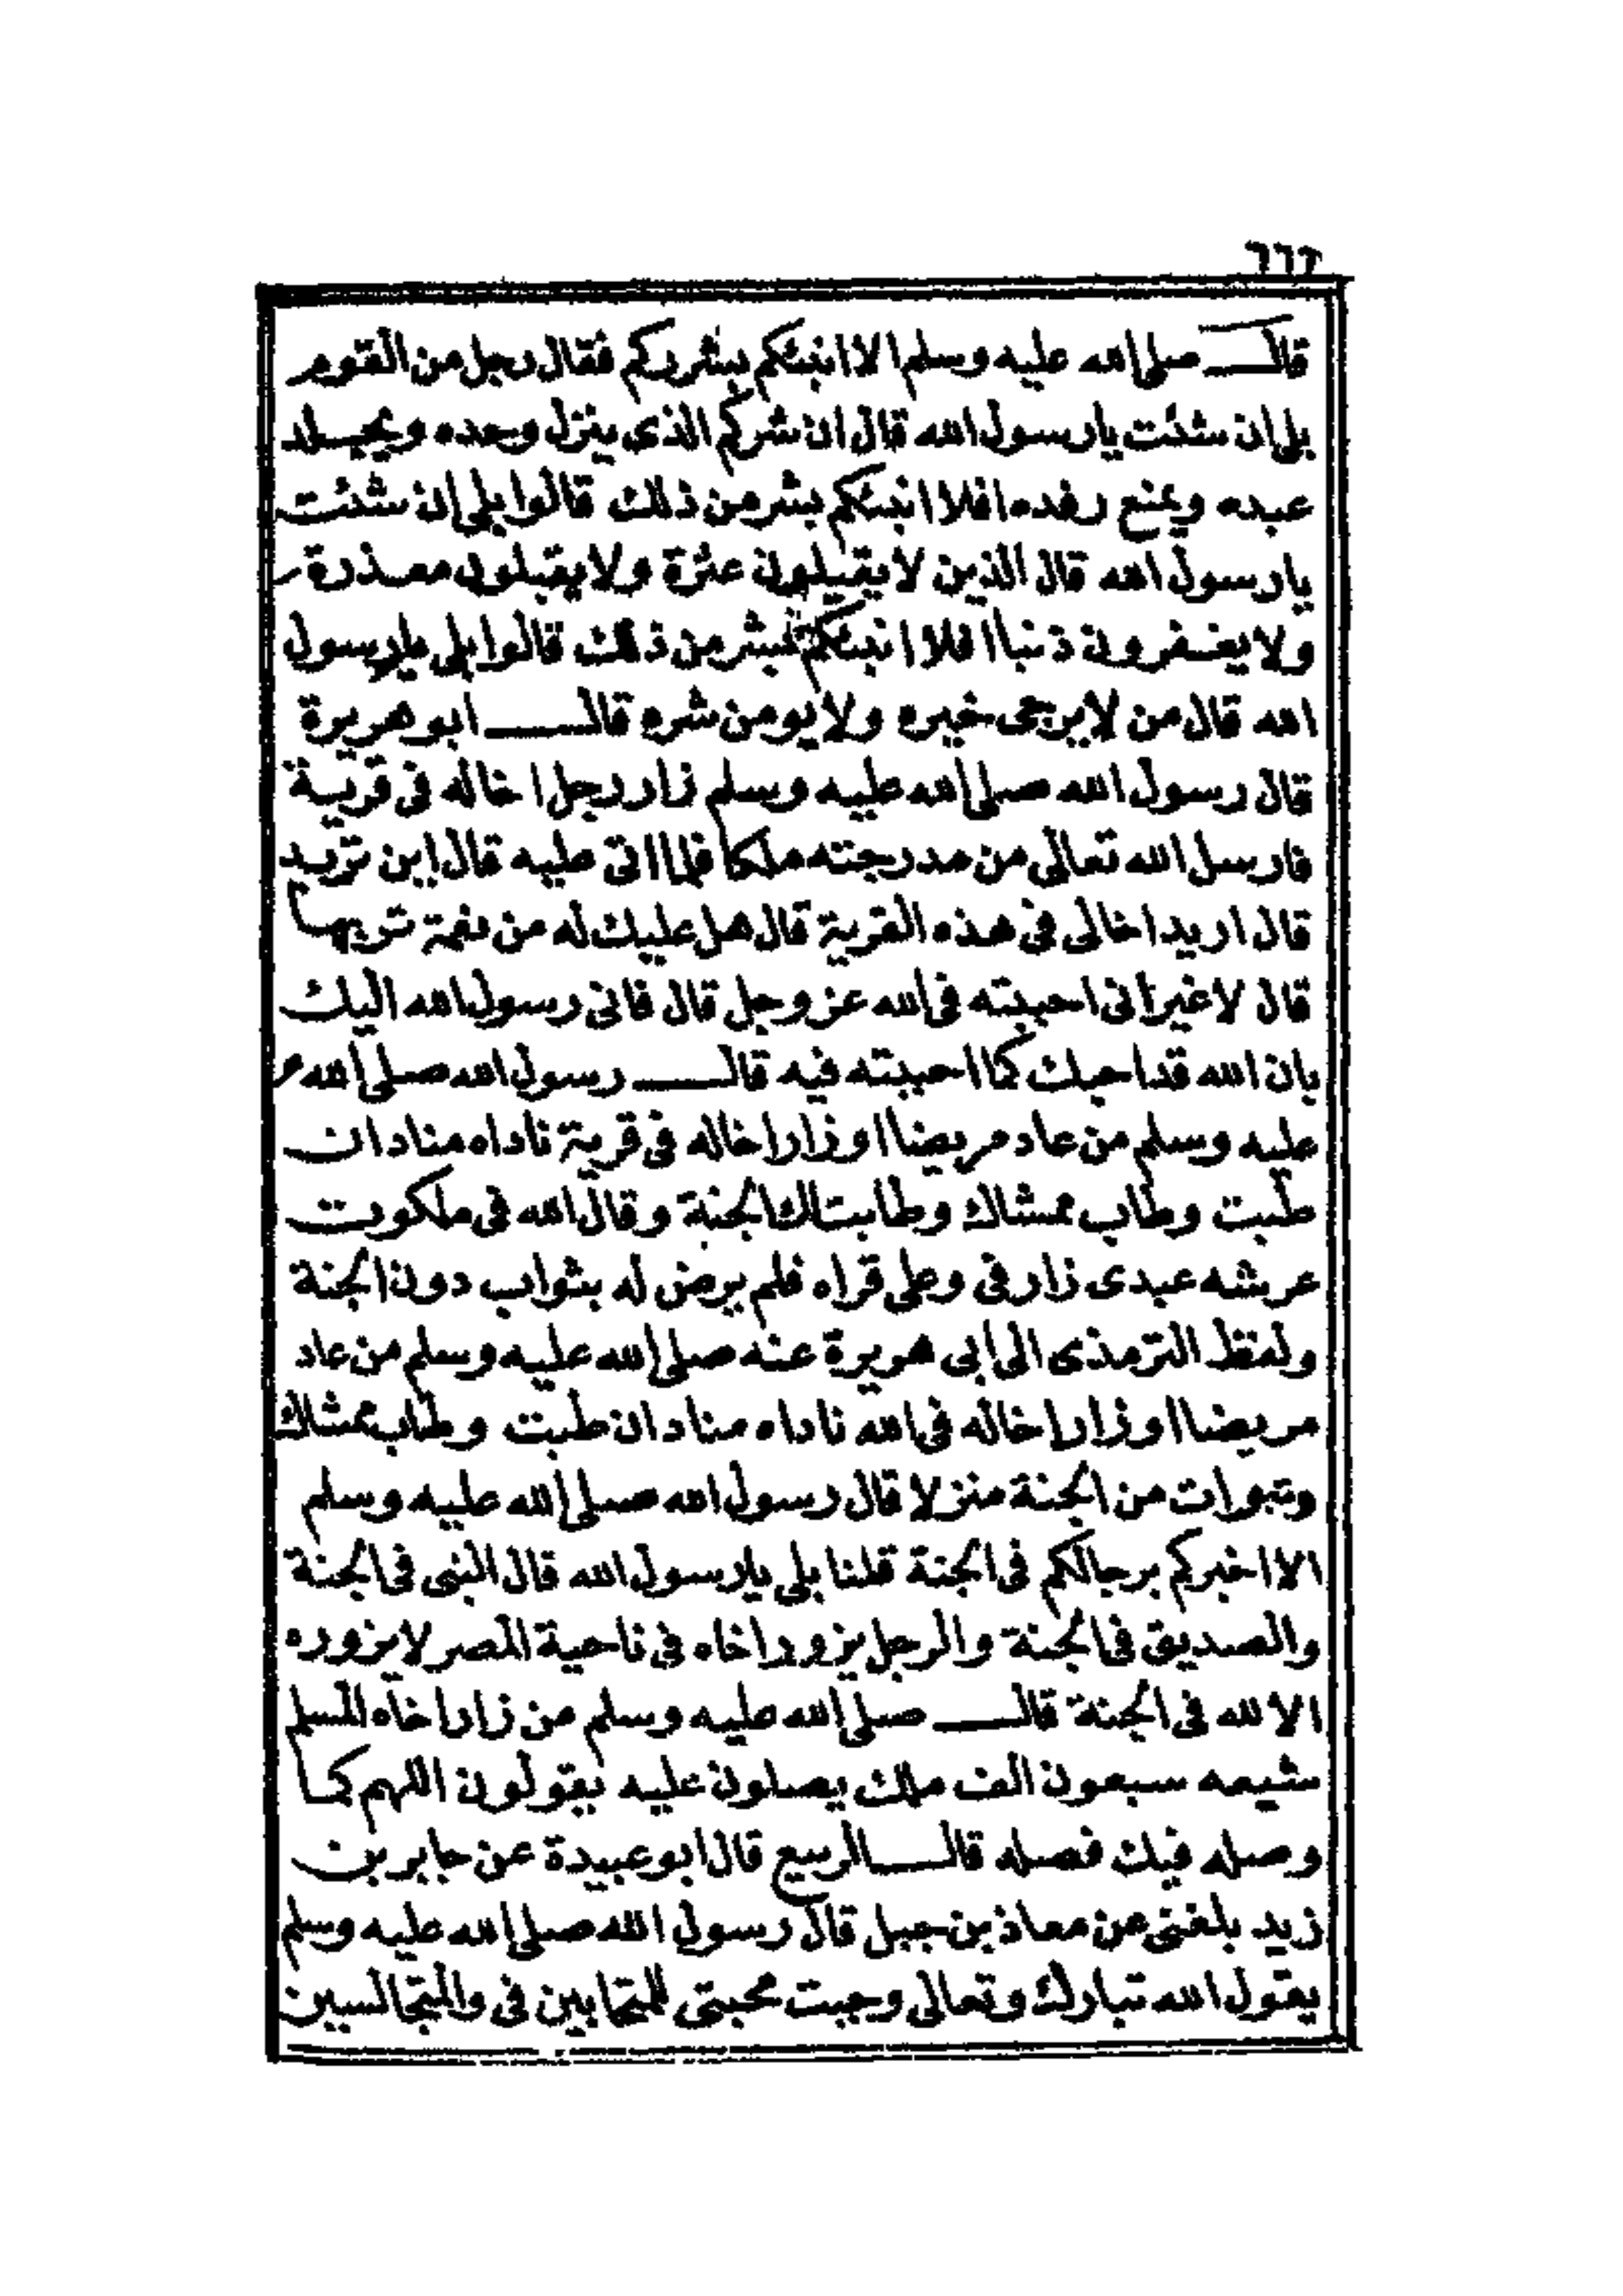 ٦٦٦
قال صلى الله عليه وسلم الا انبئكم بشراركم فقال رجل من القوم
بلى ان شئت يا رسول الله قال ان شركم الذى ينزل وحده ويجلد
عبده ويمنع رفده افلا انبئكم بشر من ذلك قالوا بلى ان شئت
يا رسول الله قال الذين لا يقيلون عثرة ولا يقبلون معذرة
ولا يغفرون ذنبا افلا انبئكم بشر من ذلك قالوا بلى يا رسول
الله قال من لا يرجى خيره ولا يومن شره قال ابو هريرة
قال رسول الله صلى الله عليه وسلم زار رجل اخاله فى قرية
فارسل الله تعالى من مدرجته ملكا فلما اتى عليه قال اين تريد
قال اريد اخالى فى هذه القرية قال هل عليك له من نعمة تربها
قال لا غير انى احببته فى الله عز وجل قال فانى رسول الله اليك
بان الله قد احبك كما احببته فيه قال رسول الله صلى الله
عليه وسلم من عاد مريضا او زار اخاله فى قرية ناداه مناد ان
طبت وطاب ممشاك وطابت لك الجنة وقال الله فى ملكوت
عرشه عبدى زار فى وعلى قراه فلم يرض له بثواب دون الجنة
ولفظ الترمذى الى ابى هريرة عنه صلى الله عليه وسلم من عاد
مريضا او زار اخاله فى الله ناداه مناد ان طبت وطاب ممشاك
وتبوات من الجنة منزلا قال رسول الله صلى الله عليه وسلم
الا اخبركم برجالكم فى الجنة قلنا بلى يا رسول الله قال النبى فى الجنة
والصديق فى الجنة والرجل يزور اخاه فى ناحية المصر لا يزوره
الا لله فى الجنة قال صلى الله عليه وسلم من زار اخاه المسلم
شيعه سبعون الف ملك يصلون عليه يقولون اللهم كما
وصله فيك فصله قال الربيع قال ابو عبيدة عن جابر بن
زيد بلغنى عن معاذ بن جبل قال رسول الله صلى الله عليه وسلم
يقول الله تبارك وتعالى وجبت محبتى للمتحابين فى والمتجالسين